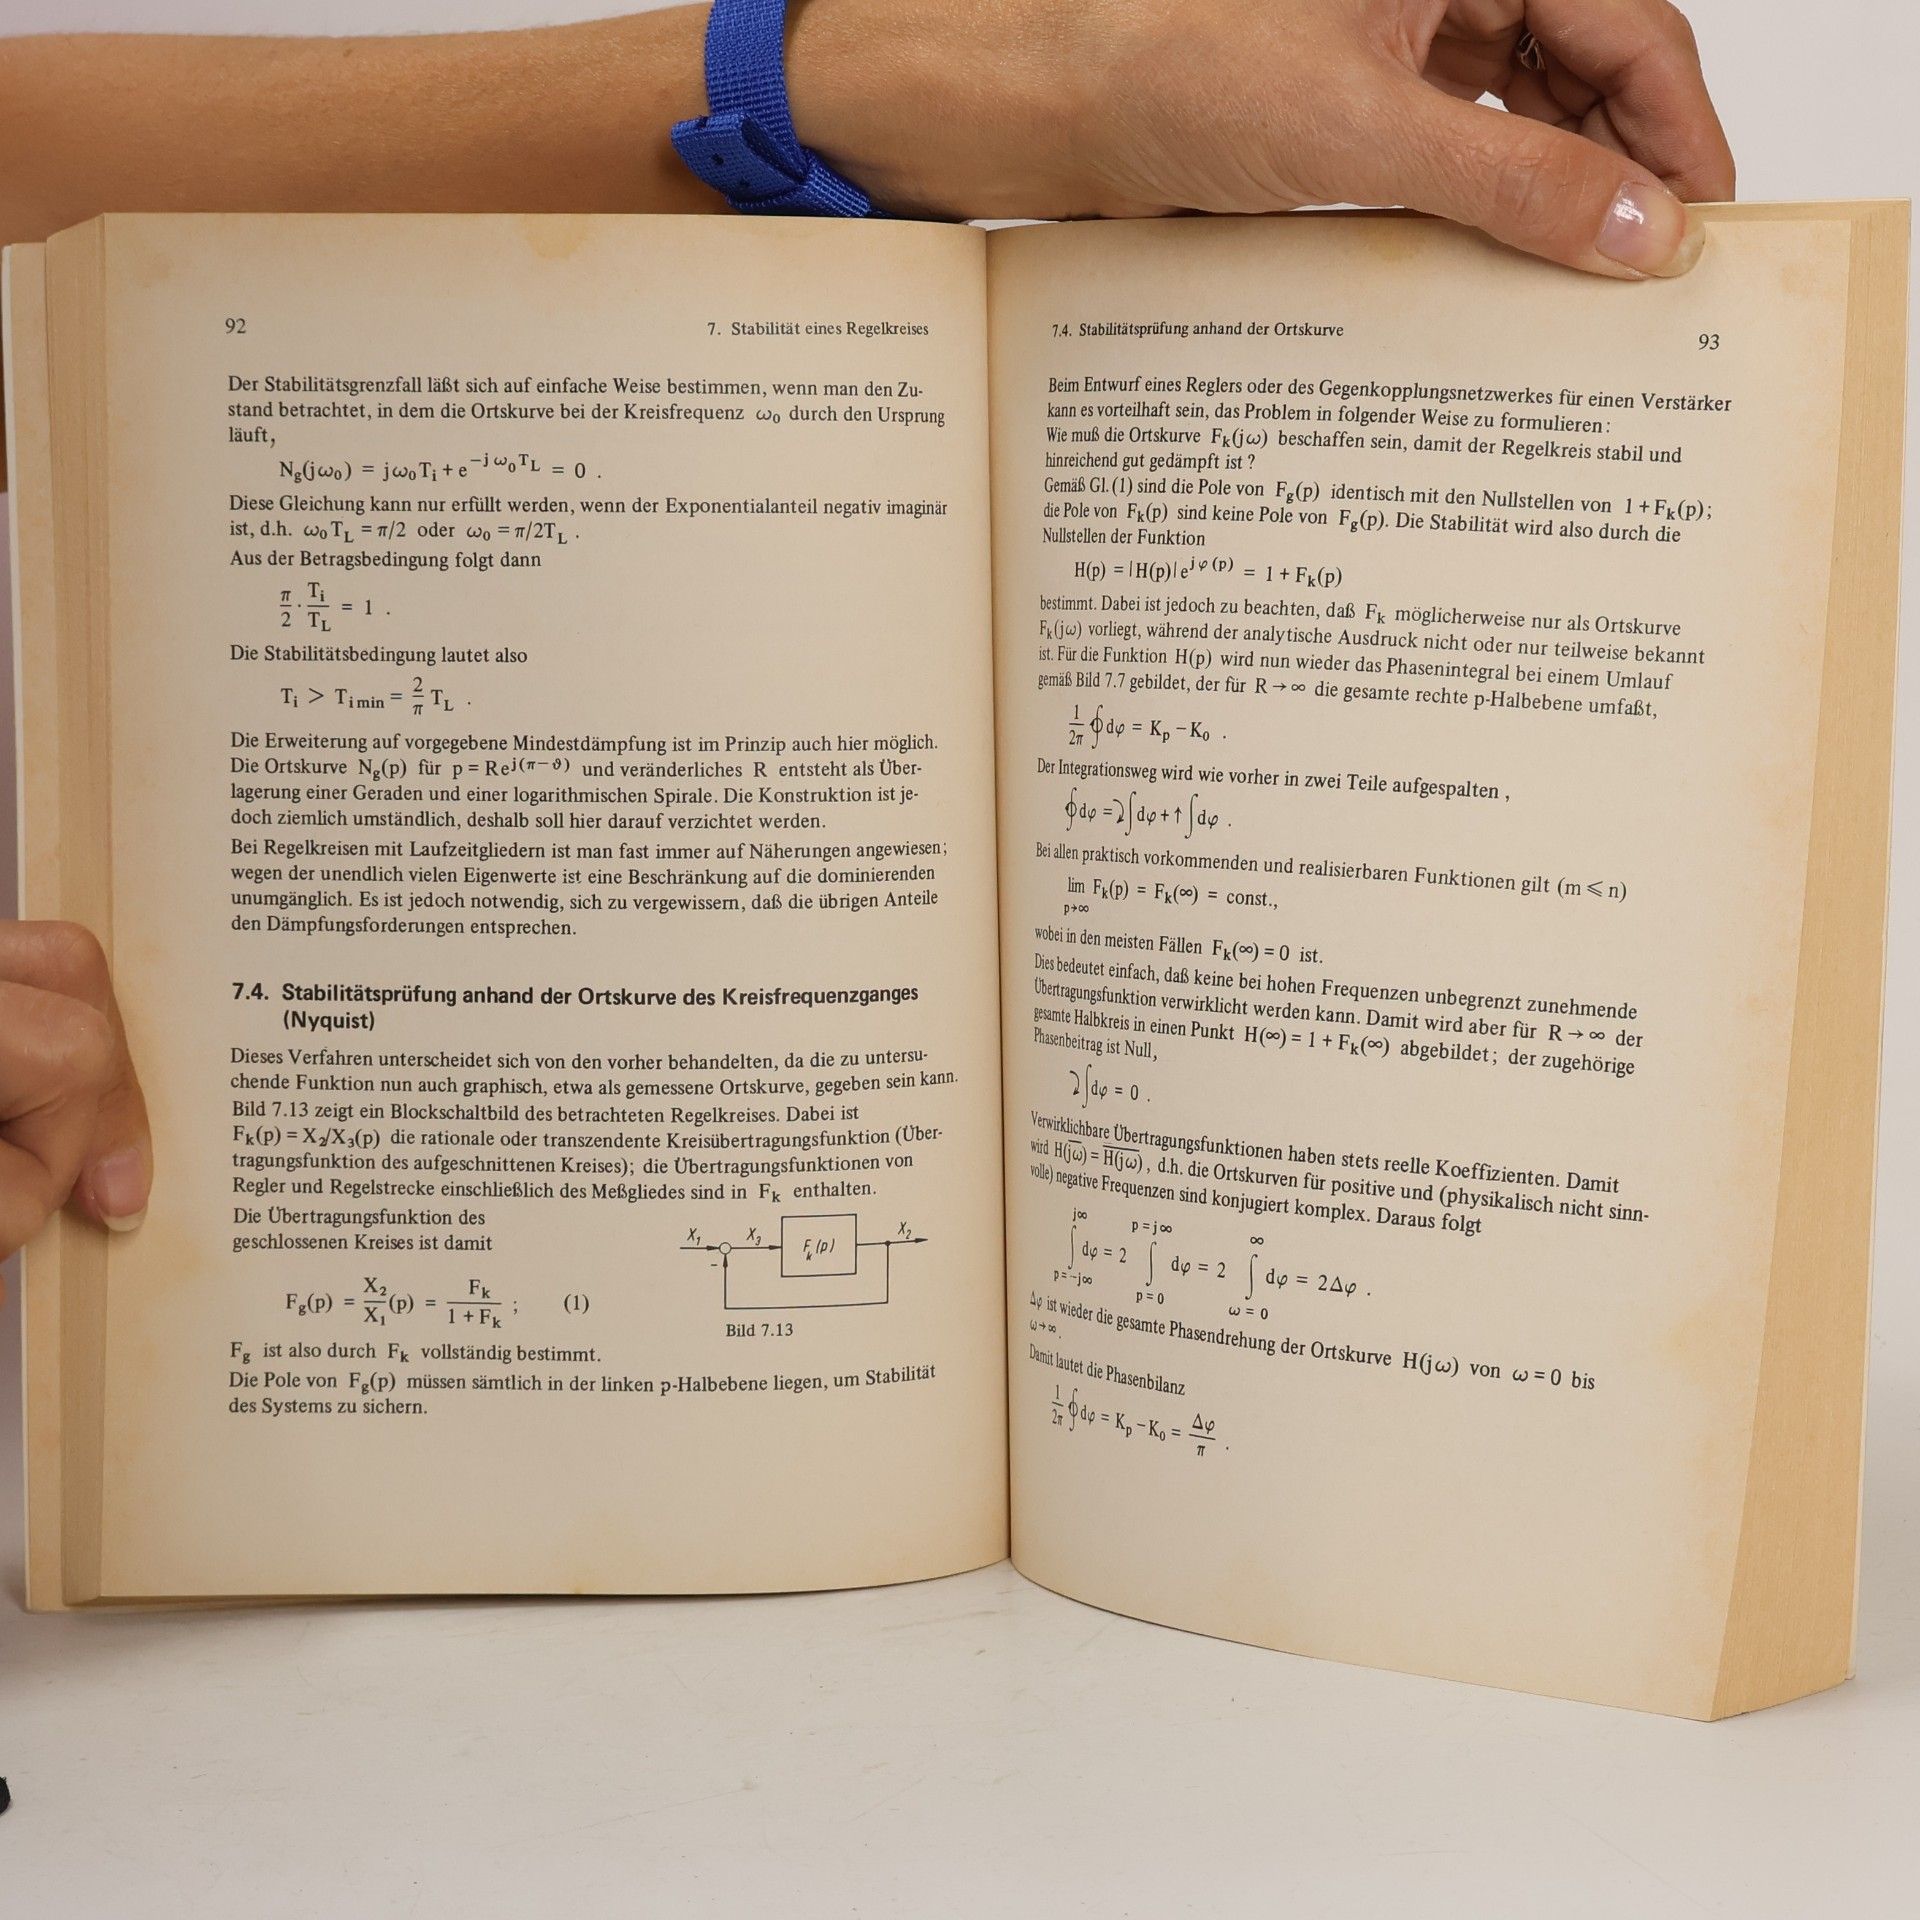 92
7. Stabilität eines Regelkreises
Der Stabilitätsgrenzfall läßt sich auf einfache Weise bestimmen, wenn man den Zu-
stand betrachtet, in dem die Ortskurve bei der Kreisfrequenz ω₀ durch den Ursprung
läuft,
N_g(jω₀) = jω₀T_i + e^(−jω₀T_L) = 0 .
Diese Gleichung kann nur erfüllt werden, wenn der Exponentialanteil negativ imaginär
ist, d.h. ω₀T_L = π/2 oder ω₀ = π/2T_L .
Aus der Betragsbedingung folgt dann
π/2 · T_i/T_L = 1 .
Die Stabilitätsbedingung lautet also
T_i > T_i min = 2/π T_L .
Die Erweiterung auf vorgegebene Mindestdämpfung ist im Prinzip auch hier möglich.
Die Ortskurve N_g(p) für p = Re^(j(π−ϑ)) und veränderliches R entsteht als Über-
lagerung einer Geraden und einer logarithmischen Spirale. Die Konstruktion ist je-
doch ziemlich umständlich, deshalb soll hier darauf verzichtet werden.
Bei Regelkreisen mit Laufzeitgliedern ist man fast immer auf Näherungen angewiesen;
wegen der unendlich vielen Eigenwerte ist eine Beschränkung auf die dominierenden
unumgänglich. Es ist jedoch notwendig, sich zu vergewissern, daß die übrigen Anteile
den Dämpfungsforderungen entsprechen.
7.4. Stabilitätsprüfung anhand der Ortskurve des Kreisfrequenzganges
(Nyquist)
Dieses Verfahren unterscheidet sich von den vorher behandelten, da die zu untersu-
chende Funktion nun auch graphisch, etwa als gemessene Ortskurve, gegeben sein kann.
Bild 7.13 zeigt ein Blockschaltbild des betrachteten Regelkreises. Dabei ist
F_k(p) = X₂/X₃(p) die rationale oder transzendente Kreisübertragungsfunktion (Über-
tragungsfunktion des aufgeschnittenen Kreises); die Übertragungsfunktionen von
Regler und Regelstrecke einschließlich des Meßgliedes sind in F_k enthalten.
Die Übertragungsfunktion des
geschlossenen Kreises ist damit
F_g(p) = X₂/X₁ (p) = F_k/(1 + F_k) ; (1)
X₁ X₃ F_k(p) X₂
−
Bild 7.13
F_g ist also durch F_k vollständig bestimmt.
Die Pole von F_g(p) müssen sämtlich in der linken p-Halbebene liegen, um Stabilität
des Systems zu sichern.
7.4. Stabilitätsprüfung anhand der Ortskurve
93
Beim Entwurf eines Reglers oder des Gegenkopplungsnetzwerkes für einen Verstärker
kann es vorteilhaft sein, das Problem in folgender Weise zu formulieren:
Wie muß die Ortskurve F_k(jω) beschaffen sein, damit der Regelkreis stabil und
hinreichend gut gedämpft ist?
Gemäß Gl. (1) sind die Pole von F_g(p) identisch mit den Nullstellen von 1 + F_k(p);
die Pole von F_k(p) sind keine Pole von F_g(p). Die Stabilität wird also durch die
Nullstellen der Funktion
H(p) = |H(p)| e^(jφ(p)) = 1 + F_k(p)
bestimmt. Dabei ist jedoch zu beachten, daß F_k möglicherweise nur als Ortskurve
F_k(jω) vorliegt, während der analytische Ausdruck nicht oder nur teilweise bekannt
ist. Für die Funktion H(p) wird nun wieder das Phasenintegral bei einem Umlauf
gemäß Bild 7.7 gebildet, der für R → ∞ die gesamte rechte p-Halbebene umfaßt,
1/2π ∮ dφ = K_p − K₀ .
Der Integrationsweg wird wie vorher in zwei Teile aufgespalten ,
∮ dφ = ⤵∫ dφ + ↑∫ dφ .
Bei allen praktisch vorkommenden und realisierbaren Funktionen gilt (m ⩽ n)
lim F_k(p) = F_k(∞) = const.,
p→∞
wobei in den meisten Fällen F_k(∞) = 0 ist.
Dies bedeutet einfach, daß keine bei hohen Frequenzen unbegrenzt zunehmende
Übertragungsfunktion verwirklicht werden kann. Damit wird aber für R → ∞ der
gesamte Halbkreis in einen Punkt H(∞) = 1 + F_k(∞) abgebildet; der zugehörige
Phasenbeitrag ist Null,
⤵∫ dφ = 0 .
Verwirklichbare Übertragungsfunktionen haben stets reelle Koeffizienten. Damit
wird H(j̅ω̅) = H̅(̅j̅ω̅)̅, d.h. die Ortskurven für positive und (physikalisch nicht sinn-
volle) negative Frequenzen sind konjugiert komplex. Daraus folgt
j∞ p=j∞ ∞
∫ dφ = 2 ∫ dφ = 2 ∫ dφ = 2Δφ .
p=−j∞ p=0 ω=0
Δφ ist wieder die gesamte Phasendrehung der Ortskurve H(jω) von ω = 0 bis
ω→∞.
Damit lautet die Phasenbilanz
1/2π ∮ dφ = K_p − K₀ = Δφ/π .